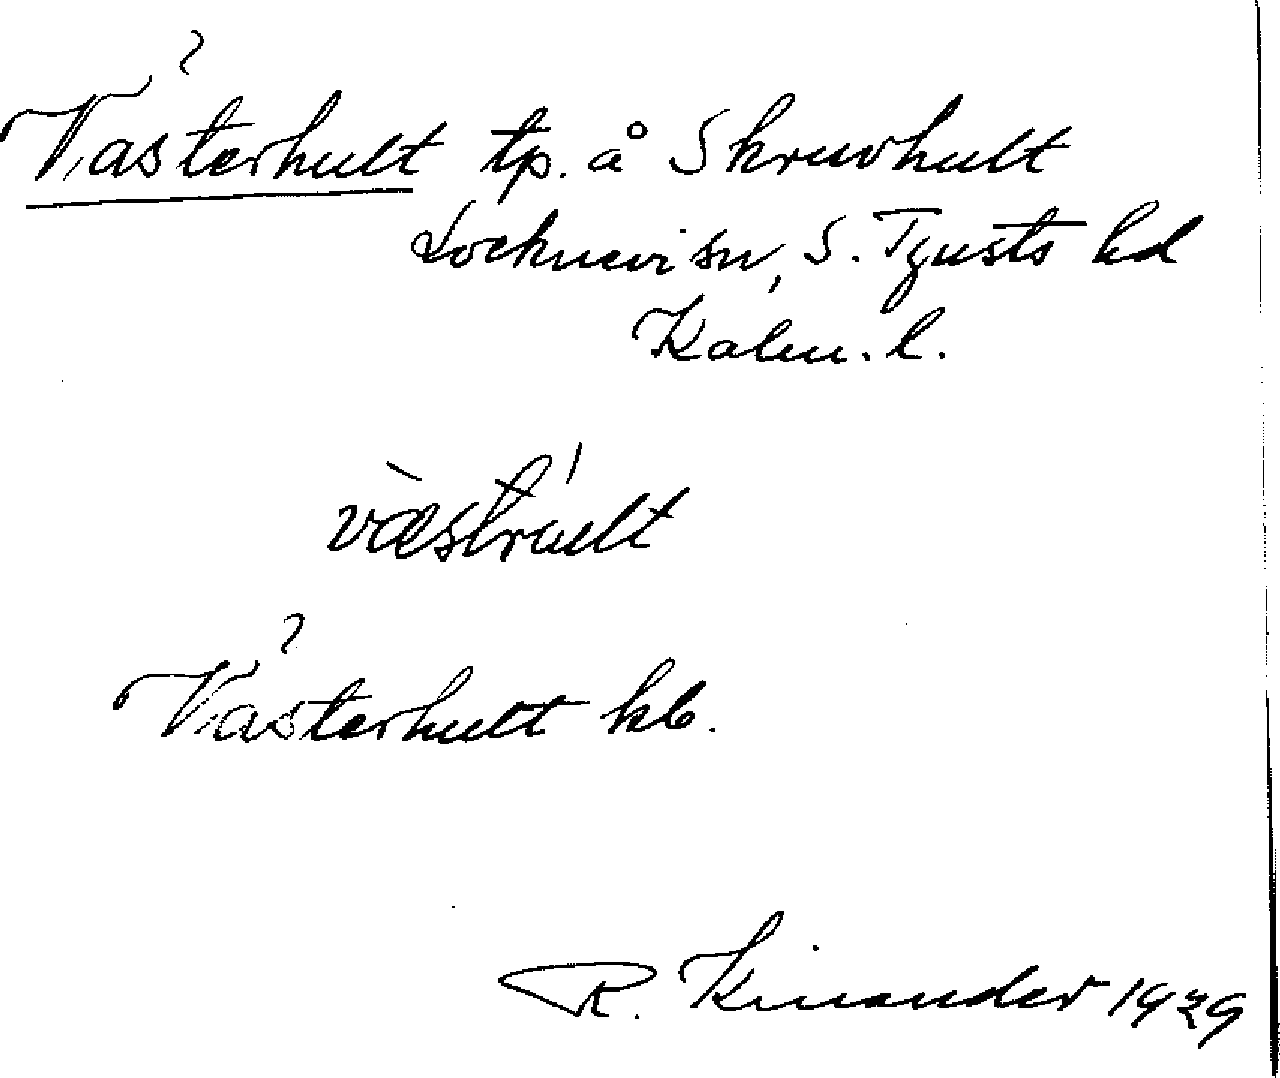 Västerhult tp. å Skruvhult
Locknevi sn, S. Tjusts hd
Kalm. l.
væ̀stṛúllt
Västerhult kb.
R. Kinander 1929